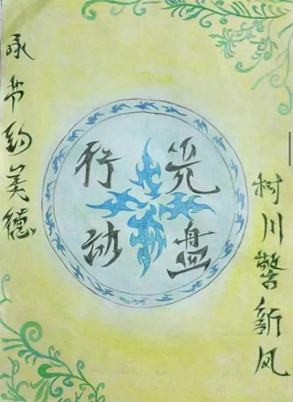 承节约美德
光盘
行动
树川警新风